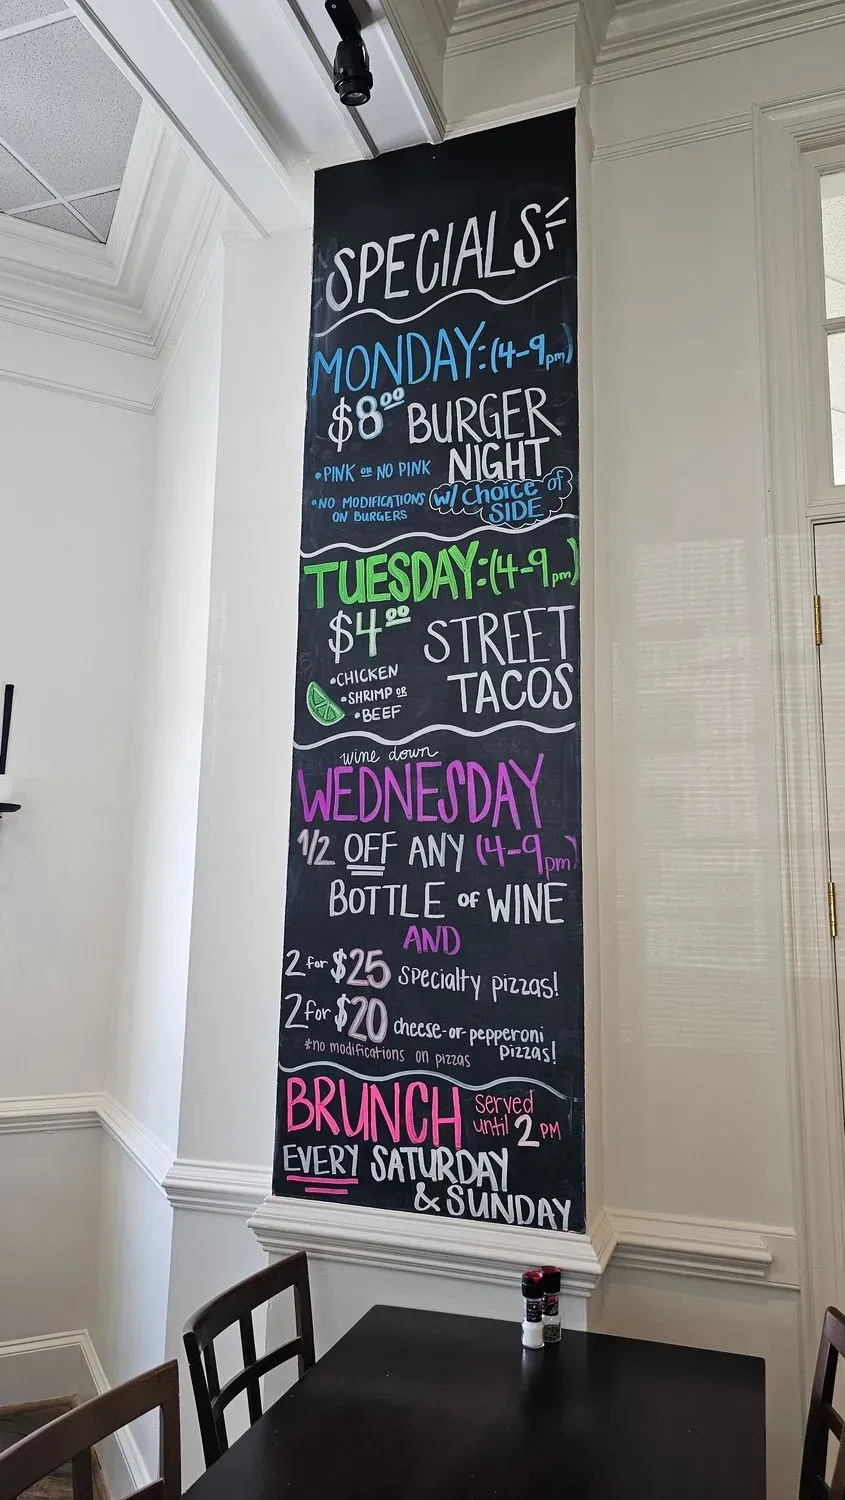 SPECIALS
MONDAY: (4-9pm)
$8.00 BURGER
NIGHT
• PINK OR NO PINK
• NO MODIFICATIONS
ON BURGERS
W/ Choice of
SIDE
TUESDAY: (4-9pm)
$4.00 STREET
TACOS
• CHICKEN
• SHRIMP OR
• BEEF
wine down
WEDNESDAY
1/2 OFF ANY (4-9pm)
BOTTLE of WINE
AND
2 for $25 specialty pizzas!
2 for $20 cheese-or-pepperoni
pizzas!
*no modifications on pizzas
BRUNCH served
until 2 PM
EVERY SATURDAY
& SUNDAY